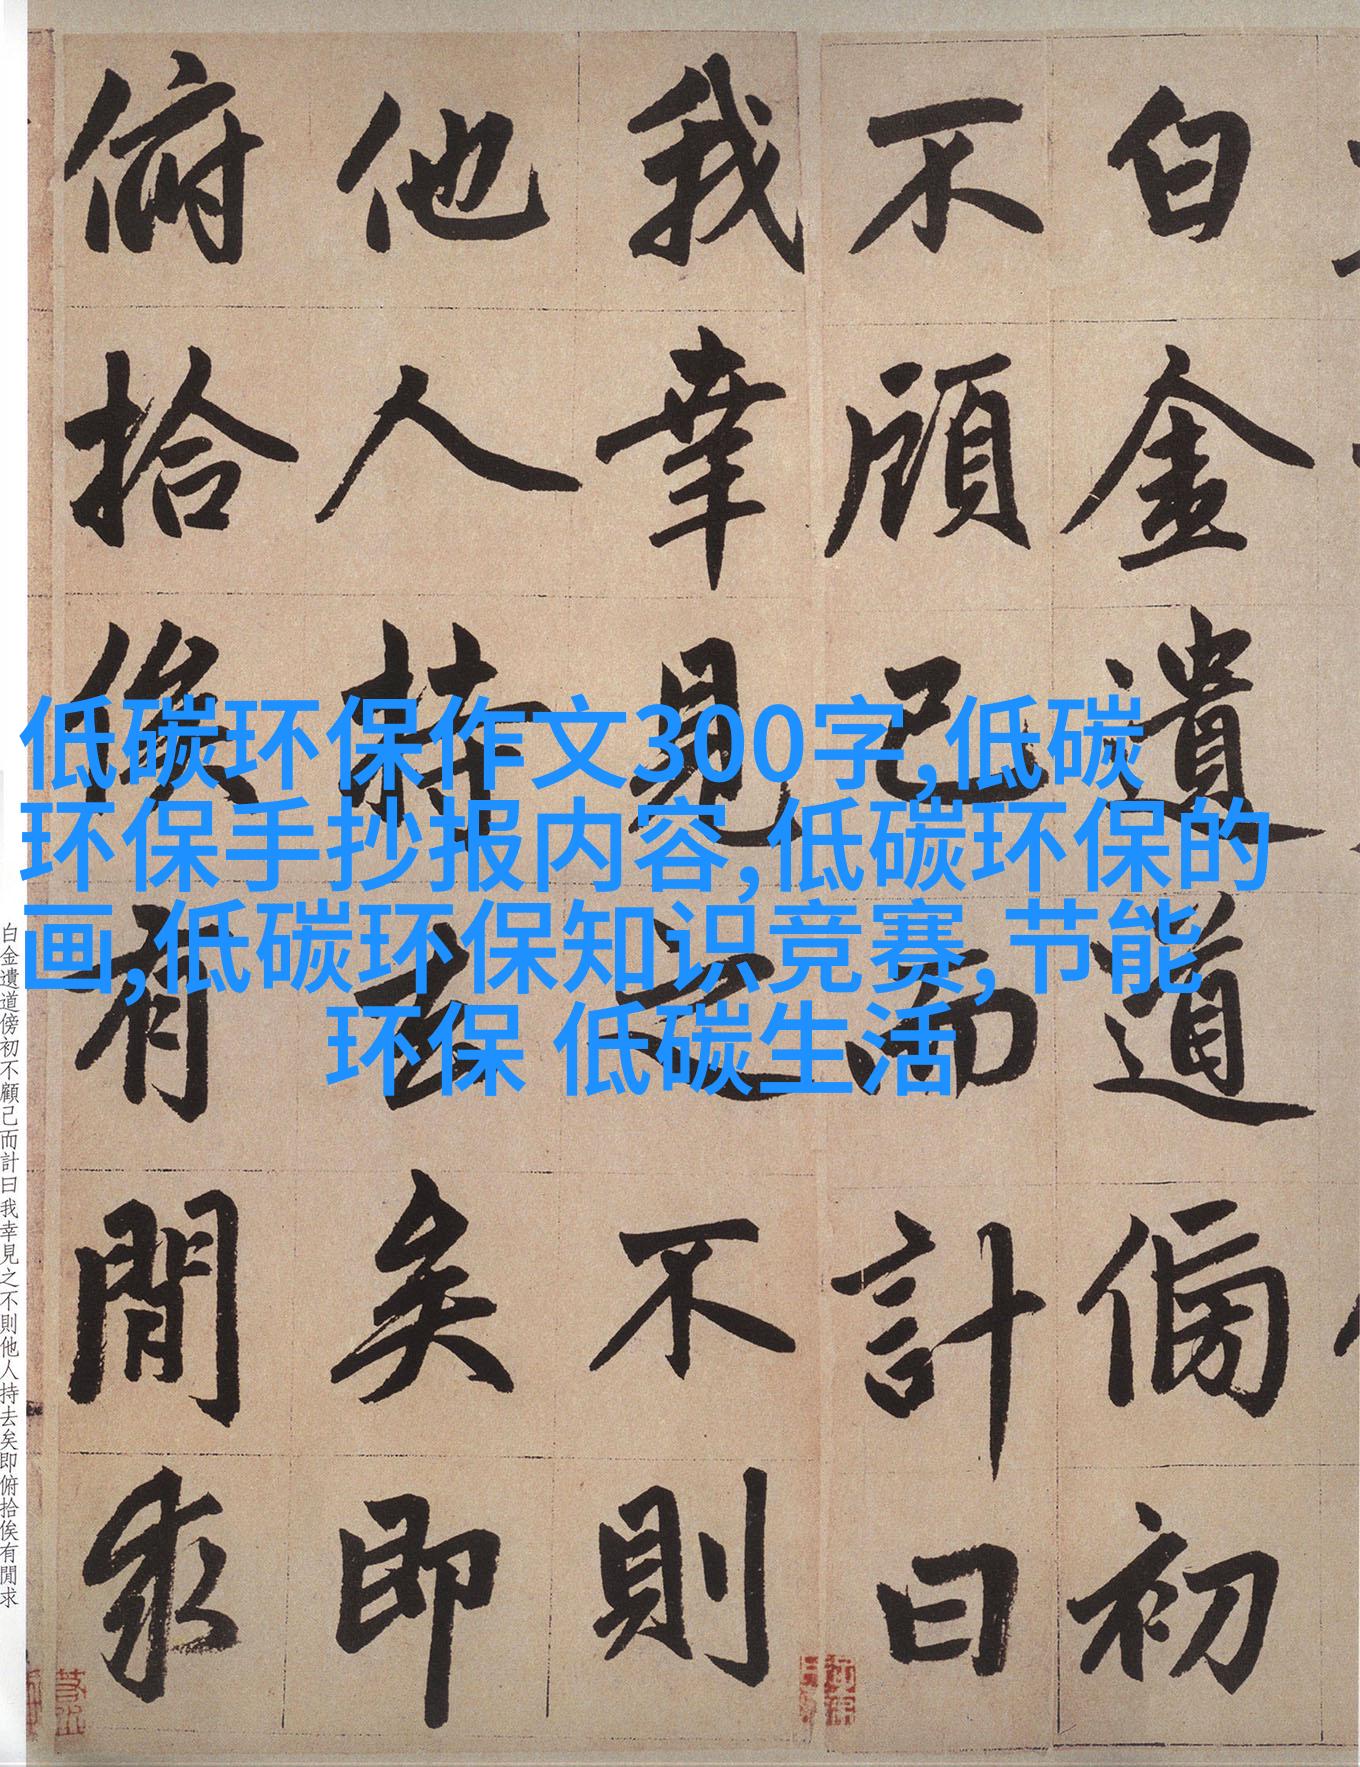 白金遺道傍初
不顧己而計曰
我幸見之不則
他人持去矣即
俯拾俟有閒求
低碳环保作文300字,低碳
环保手抄报内容,低碳环保的
画,低碳环保知识竞赛,节能
环保 低碳生活
白金遺道傍初不顧己而計曰我幸見之不則他人持去矣即俯拾俟有閒求